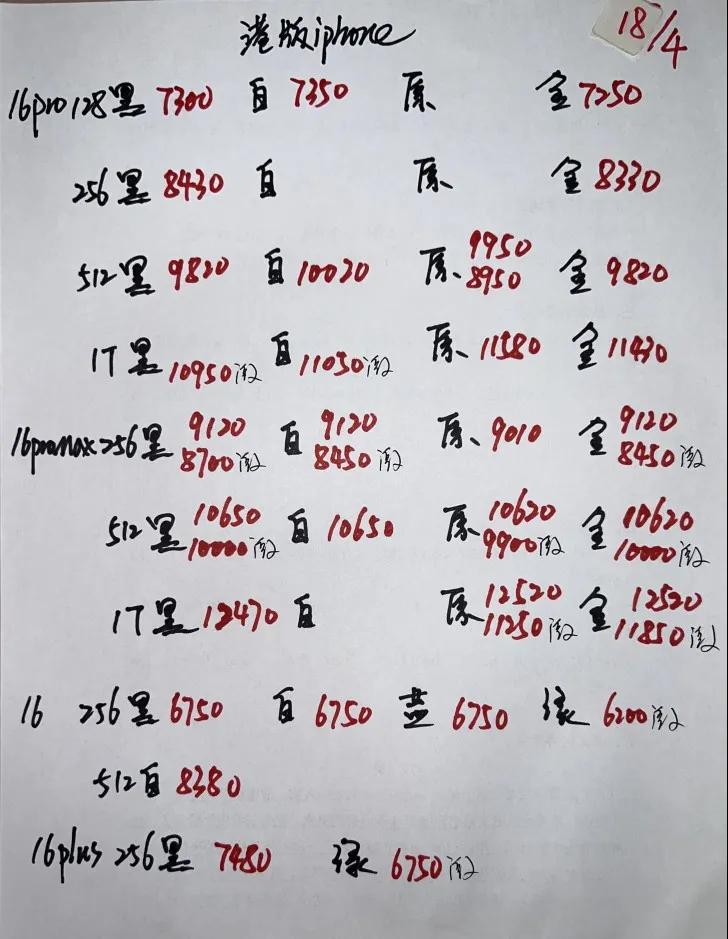 港版iphone 18/4
16pro 128黑 7300 白 7350 原 金 7250
256黑 8430 白 原 金 8330
512黑 9820 白 10020 原 9950 8950 金 9820
1T黑 10950激 白 11050激 原 11580 金 11430
16promax256黑 9120 8700激 白 9120 8450激 原 9010 金 9120 8450激
512黑 10650 10000激 白 10650 原 10620 9900激 金 10620 10000激
1T黑 12470 白 原 12520 11250激 金 12520 11850激
16 256黑 6750 白 6750 蓝 6750 绿 6200激
512白 8380
16plus 256黑 7480 绿 6750激